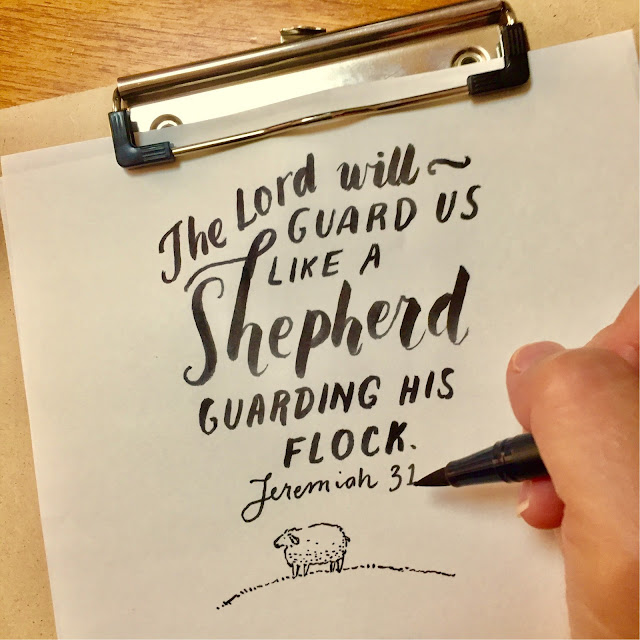 The Lord will ~
GUARD US
LIKE A
Shepherd
GUARDING HIS
FLOCK.
Jeremiah 31